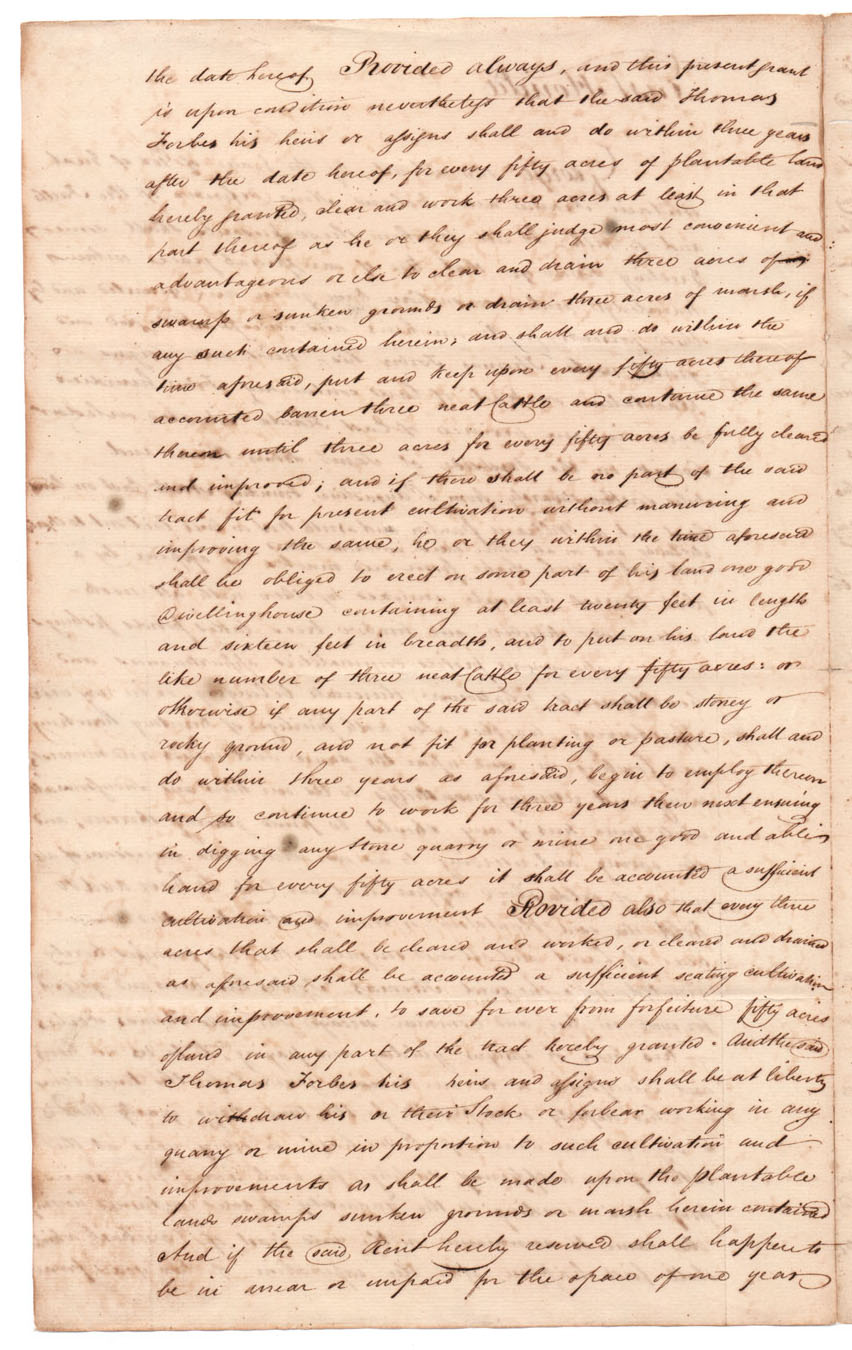 the date hereof Provided always, and this present grant
is upon condition nevertheless that the said Thomas
Forbes his heirs or assigns shall and do within three years
after the date hereof, for every fifty acres of plantable land
hereby granted, clear and work three acres at least in that
part thereof as he or they shall judge most convenient and
advantageous or else to clear and drain three acres of
swamp or sunken grounds or drain three acres of marsh, if
any such contained herein; and shall and do within the
time aforesaid, put and keep upon every fifty acres thereof
accounted barren three neat Cattle and continue the same
thereon until three acres for every fifty acres be fully cleared
and improved; and if there shall be no part of the said
tract fit for present cultivation without manureing and
improving the same, he or they within the time aforesaid
shall be obliged to erect on some part of his land one good
Dwellinghouse containing at least twenty feet in length
and sixteen feet in breadth, and to put on his land the
like number of three neat Cattle for every fifty acres: or
otherwise if any part of the said tract shall be stoney or
rocky ground, and not fit for planting or pasture, shall and
do within three years as aforesaid, begin to employ thereon
and so continue to work for three years then next ensuing
in digging any stone quarry or mine one good and able
hand for every fifty acres it shall be accounted a sufficient
cultivation and improvement Provided also that every three
acres that shall be cleared and worked, or cleared and drained
as aforesaid shall be accounted a sufficient seating cultivation
and improvement, to save for ever from forfeiture fifty acres
of land in any part of the tract hereby granted. And the said
Thomas Forbes his heirs and assigns shall be at liberty
to withdraw his or their Stock or forbear working in any
quarry or mine in proportion to such cultivation and
improvements as shall be made upon the plantable
lands swamps sunken grounds or marsh herein contained
And if the said Rent hereby reserved shall happen to
be in arrear or unpaid for the space of one year